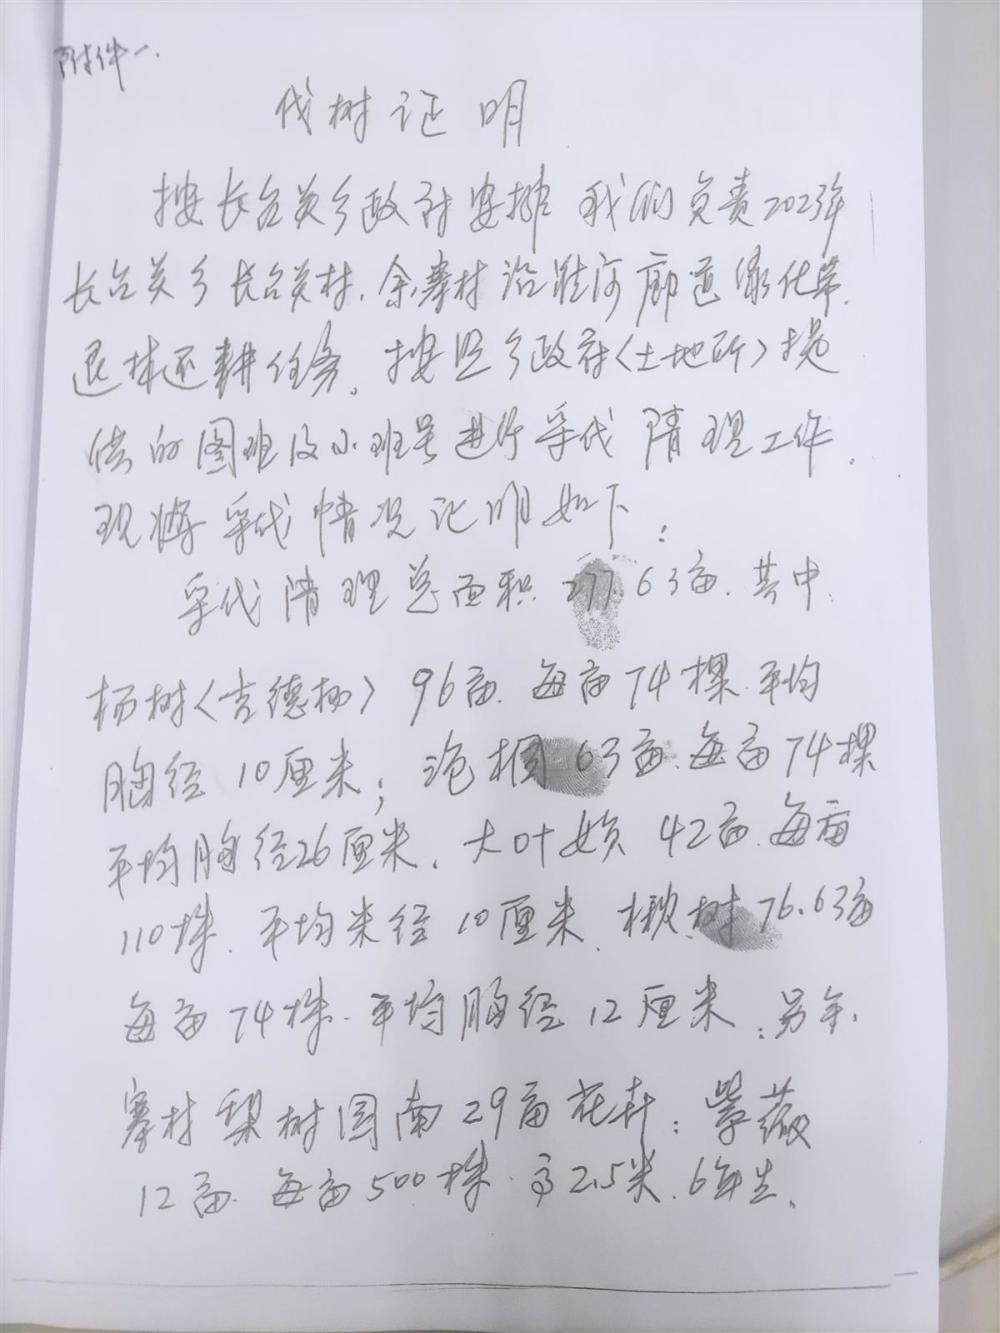 附件一.
伐树证明
按长台关乡政府安排 我们负责2023年
长台关乡长台关村、余寨村沿淮河廊道绿化带、
退林还耕任务。按照乡政府〈土地所〉提
供的图班及小班号进行采伐 清理工作.
现将采伐情况证明如下:
采伐清理总面积 277.63亩. 其中.
杨树〈吉德杨〉96亩. 每亩74棵.平均
胸径10厘米; 泡桐63亩.每亩74棵
平均胸径26厘米. 大叶女贞 42亩.每亩
110株. 平均米径10厘米. 楸树76.63亩
每亩74株.平均胸径12厘米.;另余.
寨村梨树园南29亩花卉: 紫薇
12亩. 每亩500株.高2.5米.6年生.